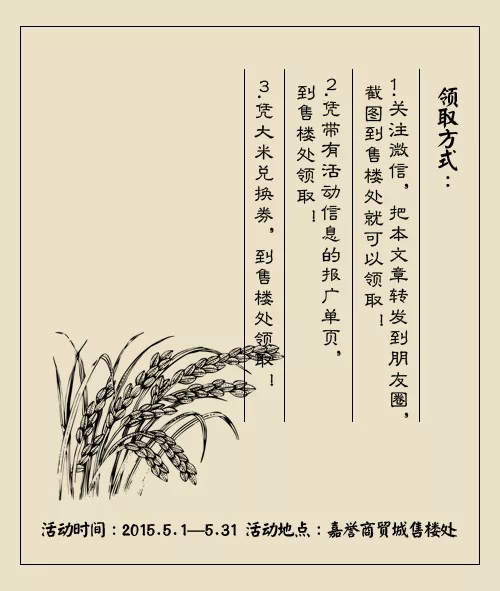 领取方式：
1.关注微信，把本文章转发到朋友圈，
截图到售楼处就可以领取！
2.凭带有活动信息的报广单页，
到售楼处领取！
3.凭大米兑换券，到售楼处领取！
活动时间：2015.5.1—5.31 活动地点：嘉誉商贸城售楼处